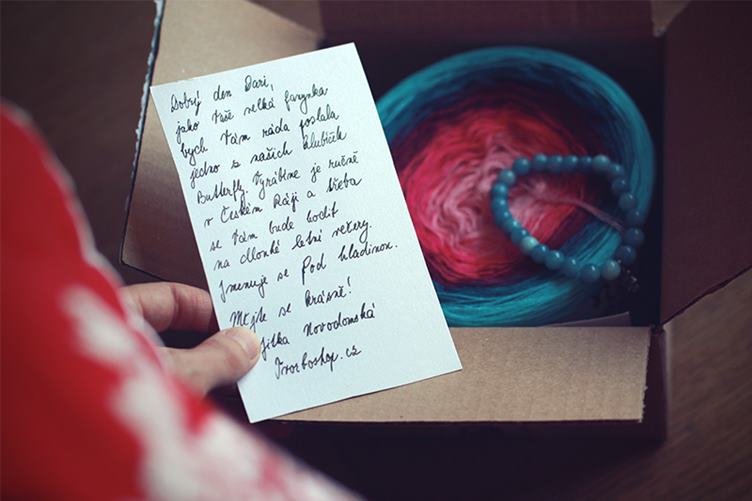 Dobrý den Dari,
jako Vaše velká fanynka
bych Vám ráda poslala
jedno z našich klubíček
Butterfly. Vyrábíme je ručně
v Českém Ráji a třeba
se Vám bude hodit
na dlouhé letní večery.
Jmenuje se Pod hladinou.
Mějte se krásně!
Jitka Novodomská
Tvorboshop.cz